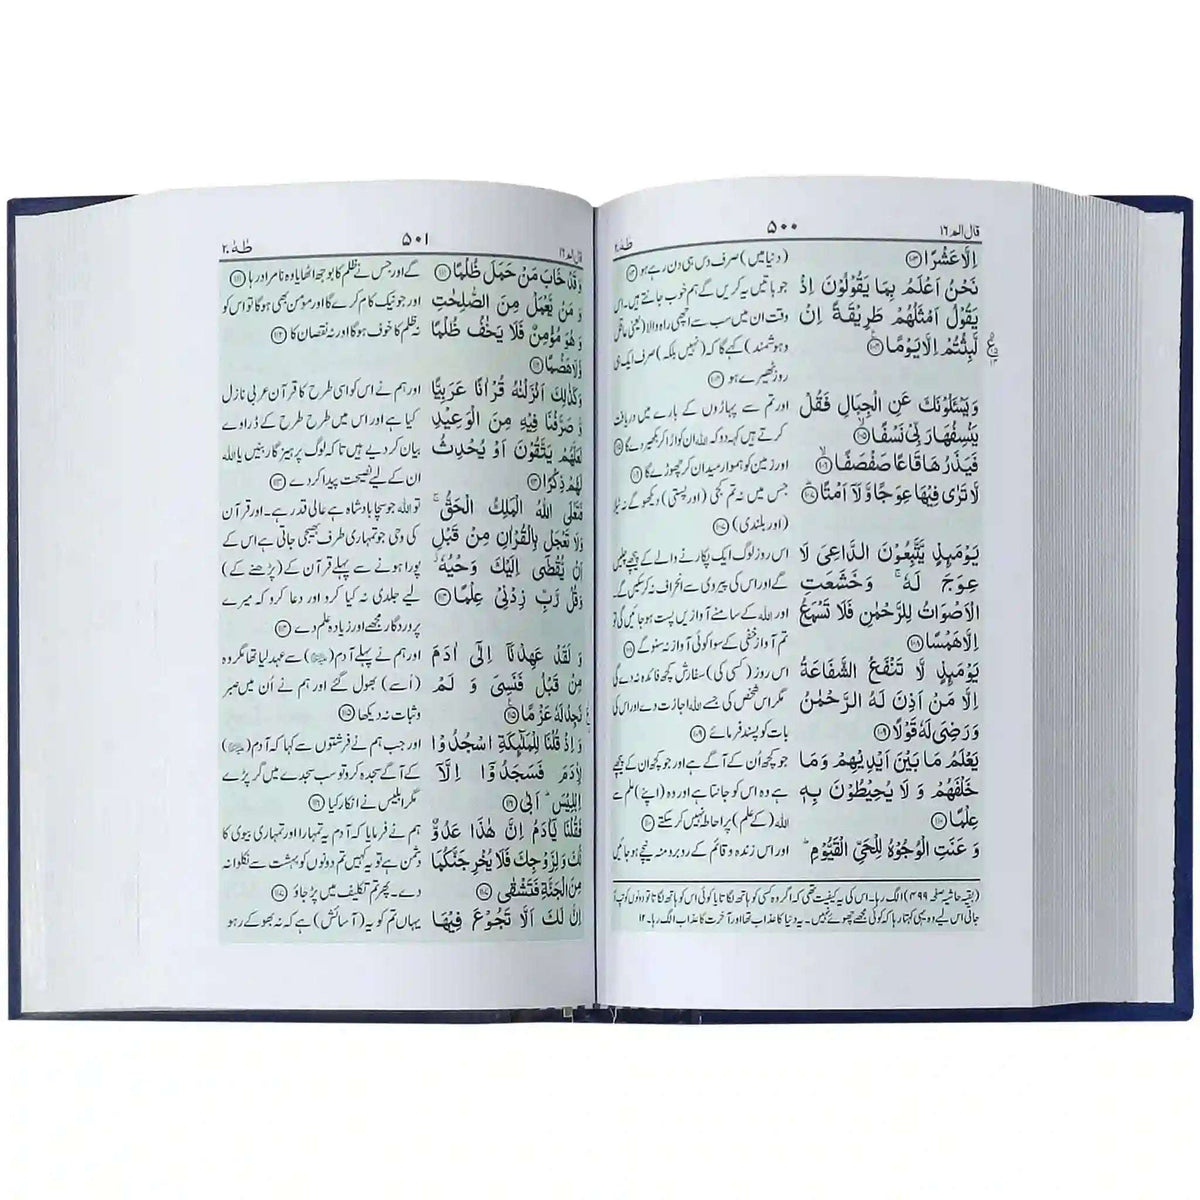 قال الم ١٦
۵۰۰
طٰهٰ ٢٠
اِلَّا عَشْرًا ﴿١٠٣﴾
نَحْنُ اَعْلَمُ بِمَا يَقُوْلُوْنَ اِذْ
يَقُوْلُ اَمْثَلُهُمْ طَرِيْقَةً اِنْ
لَّبِثْتُمْ اِلَّا يَوْمًا ﴿١٠٤﴾
وَيَسْـَٔلُوْنَكَ عَنِ الْجِبَالِ فَقُلْ
يَنْسِفُهَا رَبِّيْ نَسْفًا ﴿١٠٥﴾
فَيَذَرُهَا قَاعًا صَفْصَفًا ﴿١٠٦﴾
لَّا تَرٰى فِيْهَا عِوَجًا وَّلَآ اَمْتًا ﴿١٠٧﴾
يَوْمَىِٕذٍ يَّتَّبِعُوْنَ الدَّاعِيَ لَا
عِوَجَ لَهٗ ۚ وَخَشَعَتِ
الْاَصْوَاتُ لِلرَّحْمٰنِ فَلَا تَسْمَعُ
اِلَّا هَمْسًا ﴿١٠٨﴾
يَوْمَىِٕذٍ لَّا تَنْفَعُ الشَّفَاعَةُ
اِلَّا مَنْ اَذِنَ لَهُ الرَّحْمٰنُ
وَرَضِيَ لَهٗ قَوْلًا ﴿١٠٩﴾
يَعْلَمُ مَا بَيْنَ اَيْدِيْهِمْ وَمَا
خَلْفَهُمْ وَلَا يُحِيْطُوْنَ بِهٖ
عِلْمًا ﴿١١٠﴾
وَعَنَتِ الْوُجُوْهُ لِلْحَيِّ الْقَيُّوْمِ ؕ
(دنیا میں) صرف دس ہی دن رہے ہو ﴿١٠٣﴾
جو باتیں یہ کریں گے ہم خوب جانتے ہیں۔ اس
وقت ان میں سب سے اچھی راہ والا (یعنی عاقل
و ہوشمند) کہے گا کہ (نہیں بلکہ) صرف ایک ہی
روز ٹھیرے ہو ﴿١٠٤﴾
اور تم سے پہاڑوں کے بارے میں دریافت
کرتے ہیں کہہ دو کہ اللہ ان کو اڑا کر بکھیر دے گا ﴿١٠٥﴾
اور زمین کو ہموار میدان کر چھوڑے گا ﴿١٠٦﴾
جس میں نہ تم کجی (اور پستی) دیکھو گے نہ ٹیلا
(اور بلندی) ﴿١٠٧﴾
اس روز لوگ ایک پکارنے والے کے پیچھے چلیں
گے اور اس کی پیروی سے انحراف نہ کر سکیں گے۔
اور اللہ کے سامنے آوازیں پست ہو جائیں گی تو
تم آواز خفی کے سوا کوئی آواز نہ سنو گے ﴿١٠٨﴾
اس روز (کسی کی) سفارش کچھ فائدہ نہ دے گی
مگر اس شخص کی جسے اللہ اجازت دے اور اس کی
بات کو پسند فرمائے ﴿١٠٩﴾
جو کچھ اُن کے آگے ہے اور جو کچھ ان کے پیچھے
ہے وہ اس کو جانتا ہے اور وہ (اپنے) علم سے
اللہ (کے علم) پر احاطہ نہیں کر سکتے ﴿١١٠﴾
اور اس زندہ و قائم کے رو برو منہ نیچے ہو جائیں
(بقیہ حاشیہ صفحہ ۴۹۹) الگ رہا۔ اس کی یہ کیفیت تھی کہ اگر وہ کسی کو ہاتھ لگاتا یا کوئی اس کو ہاتھ لگاتا تو دونوں کو تپ آ
جاتی اس لیے وہ یہی کہتا رہا کہ کوئی مجھے چھوئے نہیں۔ یہ دنیا کا عذاب تھا اور آخرت کا عذاب الگ رہا۔ ١٢
قال الم ١٦
۵۰۱
طٰهٰ ٢٠
وَقَدْ خَابَ مَنْ حَمَلَ ظُلْمًا ﴿١١١﴾
وَمَنْ يَّعْمَلْ مِنَ الصّٰلِحٰتِ
وَهُوَ مُؤْمِنٌ فَلَا يَخٰفُ ظُلْمًا
وَّلَا هَضْمًا ﴿١١٢﴾
وَكَذٰلِكَ اَنْزَلْنٰهُ قُرْاٰنًا عَرَبِيًّا
وَّصَرَّفْنَا فِيْهِ مِنَ الْوَعِيْدِ
لَعَلَّهُمْ يَتَّقُوْنَ اَوْ يُحْدِثُ
لَهُمْ ذِكْرًا ﴿١١٣﴾
فَتَعٰلَى اللّٰهُ الْمَلِكُ الْحَقُّ ۚ
وَلَا تَعْجَلْ بِالْقُرْاٰنِ مِنْ قَبْلِ
اَنْ يُّقْضٰٓى اِلَيْكَ وَحْيُهٗ ؗ
وَقُلْ رَّبِّ زِدْنِيْ عِلْمًا ﴿١١٤﴾
وَلَقَدْ عَهِدْنَآ اِلٰٓى اٰدَمَ
مِنْ قَبْلُ فَنَسِيَ وَلَمْ
نَجِدْ لَهٗ عَزْمًا ﴿١١٥﴾
وَاِذْ قُلْنَا لِلْمَلٰٓىِٕكَةِ اسْجُدُوْا
لِاٰدَمَ فَسَجَدُوْٓا اِلَّآ
اِبْلِيْسَ ؕ اَبٰى ﴿١١٦﴾
فَقُلْنَا يٰٓاٰدَمُ اِنَّ هٰذَا عَدُوٌّ
لَّكَ وَلِزَوْجِكَ فَلَا يُخْرِجَنَّكُمَا
مِنَ الْجَنَّةِ فَتَشْقٰى ﴿١١٧﴾
اِنَّ لَكَ اَلَّا تَجُوْعَ فِيْهَا
گے اور جس نے ظلم کا بوجھ اٹھایا وہ نامراد رہا ﴿١١١﴾
اور جو نیک کام کرے گا اور مومن بھی ہو گا تو اس کو
نہ ظلم کا خوف ہو گا اور نہ نقصان کا ﴿١١٢﴾
اور ہم نے اس کو اسی طرح کا قرآن عربی نازل
کیا ہے اور اس میں طرح طرح کے ڈراوے
بیان کر دیے ہیں تاکہ لوگ پرہیزگار بنیں یا اللہ
ان کے لیے نصیحت پیدا کر دے ﴿١١٣﴾
تو اللہ جو سچا بادشاہ ہے عالی قدر ہے۔ اور قرآن
کی وحی جو تمہاری طرف بھیجی جاتی ہے اس کے
پورا ہونے سے پہلے قرآن کے (پڑھنے کے)
لیے جلدی نہ کیا کرو اور دعا کرو کہ میرے
پروردگار مجھے اور زیادہ علم دے ﴿١١٤﴾
اور ہم نے پہلے آدم سے عہد لیا تھا مگر وہ
(اُسے) بھول گئے اور ہم نے اُن میں صبر
و ثبات نہ دیکھا ﴿١١٥﴾
اور جب ہم نے فرشتوں سے کہا کہ آدم
کے آگے سجدہ کرو تو سب سجدے میں گر پڑے
مگر ابلیس نے انکار کیا ﴿١١٦﴾
ہم نے فرمایا کہ آدم یہ تمہارا اور تمہاری بیوی کا
دشمن ہے تو یہ کہیں تم دونوں کو بہشت سے نکلوا نہ
دے۔ پھر تم تکلیف میں پڑ جاؤ ﴿١١٧﴾
یہاں تم کو یہ (آسائش) ہے کہ نہ بھوکے رہو